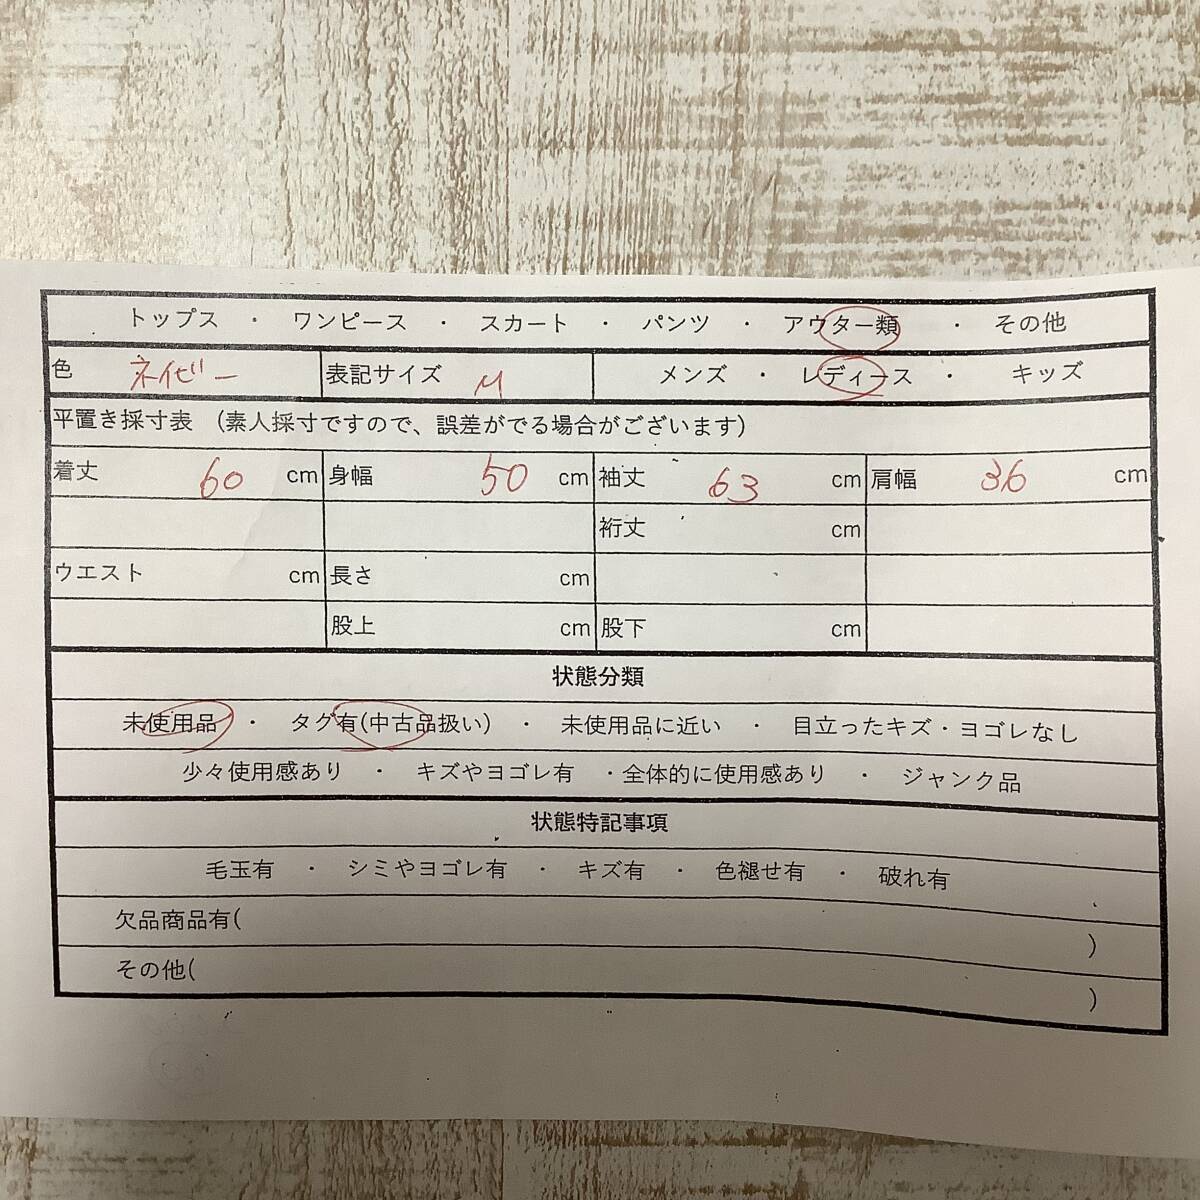 トップス ・ ワンピース ・ スカート ・ パンツ ・ アウター類 ・ その他
色 ネイビー 表記サイズ M メンズ ・ レディース ・ キッズ
平置き採寸表 (素人採寸ですので、誤差がでる場合がございます)
着丈 60 cm 身幅 50 cm 袖丈 63 cm 肩幅 36 cm
裄丈 cm
ウエスト cm 長さ cm
股上 cm 股下 cm
状態分類
未使用品 ・ タグ有(中古品扱い) ・ 未使用品に近い ・ 目立ったキズ・ヨゴレなし
少々使用感あり ・ キズやヨゴレ有 ・全体的に使用感あり ・ ジャンク品
状態特記事項
毛玉有 ・ シミやヨゴレ有 ・ キズ有 ・ 色褪せ有 ・ 破れ有
欠品商品有( )
その他( )